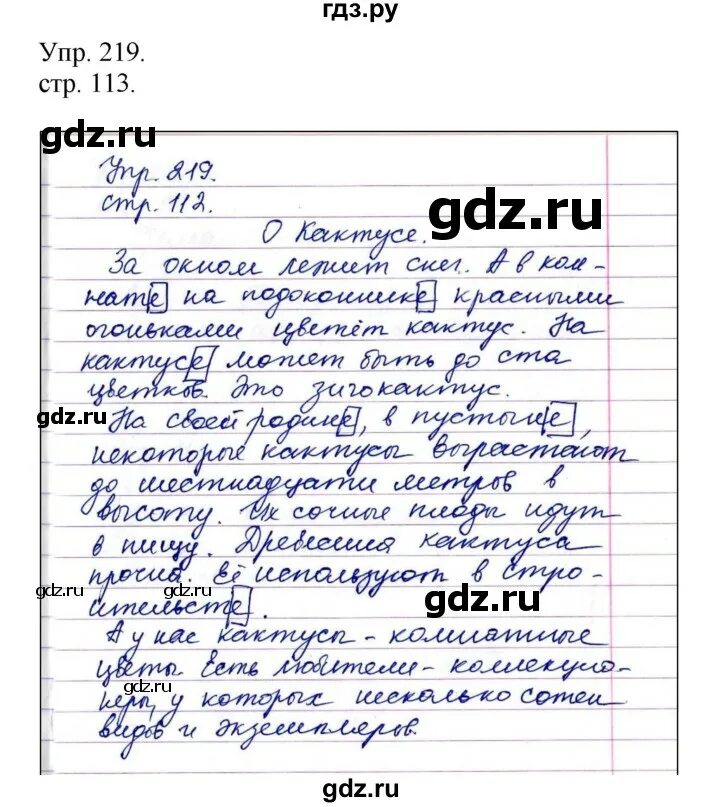 гдз.ру
Упр. 219.
стр. 113.
gdz.ru
Упр. 219.
стр. 112.
gdz.ru
О кактусе.
За окном лепит снег. А в ком-
нате на подоконнике красными
огоньками цветёт кактус. На
кактусе может быть до ста
цветков. Это зигокактус.
gdz.ru
На своей родине, в пустыне,
некоторые кактусы вырастают
до шестнадцати метров в
высоту. Их сочные плоды идут
в пищу. Древесина кактуса
прочна. Её используют в стро-
gdz.ru
gdz.ru
ительстве.
А у нас кактусы - комнатные
цветы. Есть любители - коллекцио-
gdz.ru
неры, у которых несколько сотен
gdz.ru
видов и экземпляров.
gdz.ru